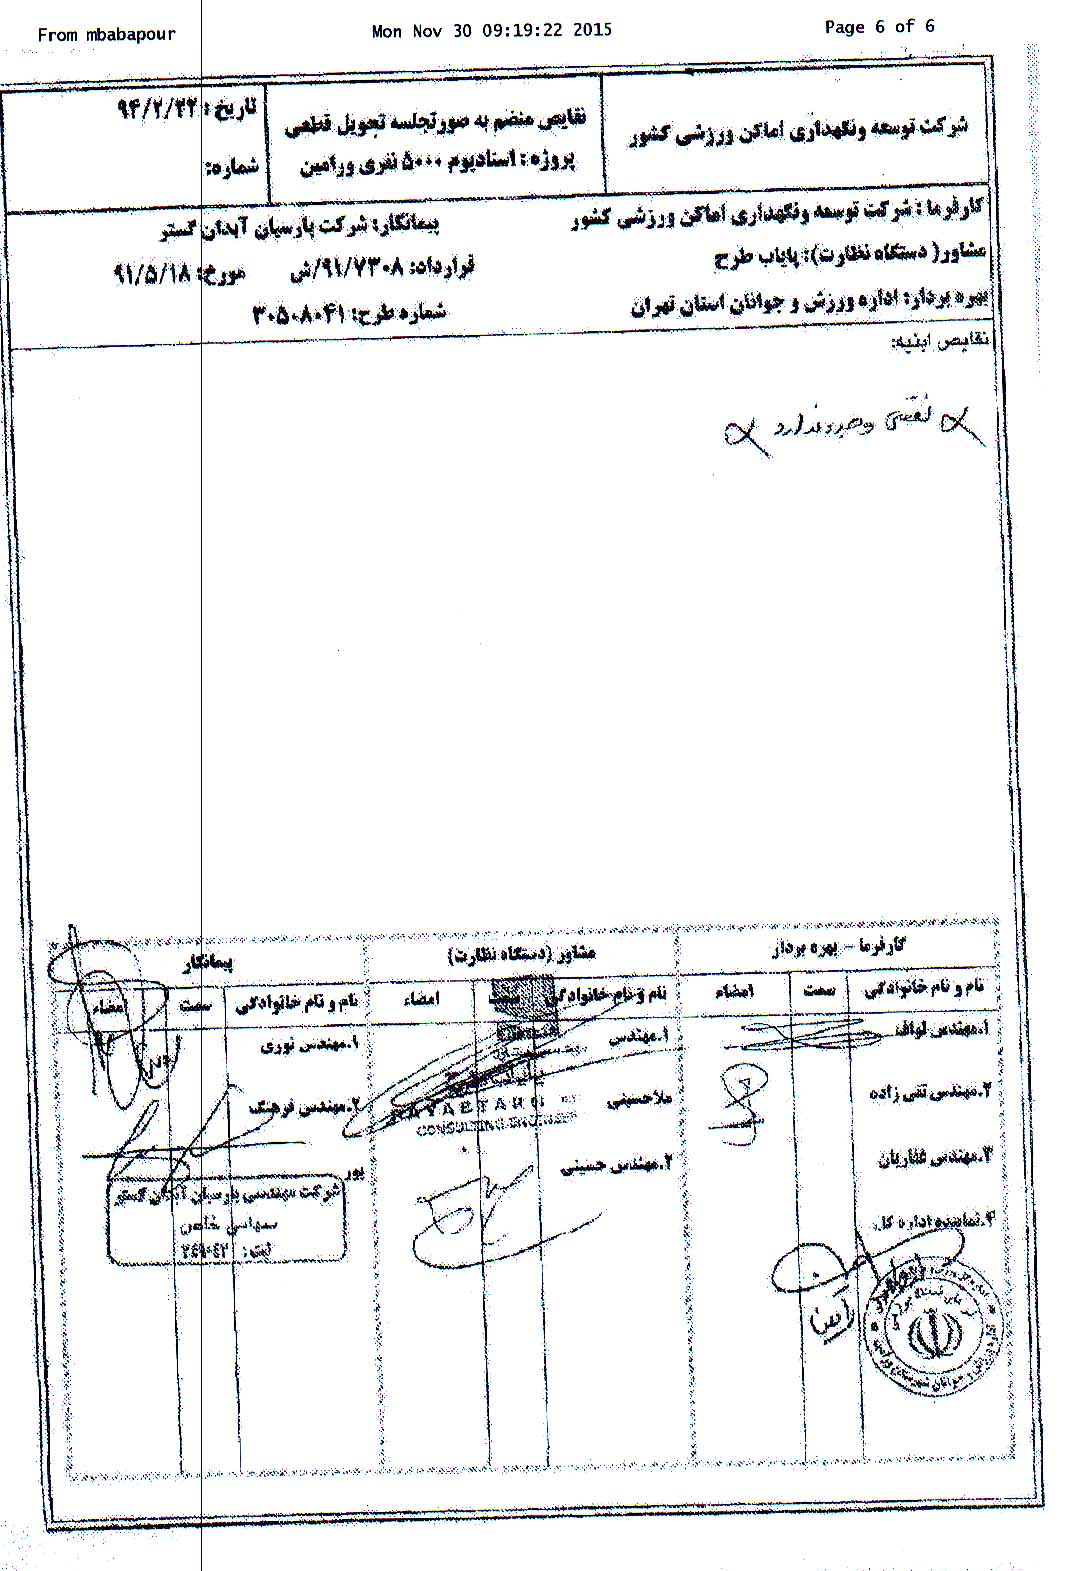 From mbabapour Mon Nov 30 09:19:22 2015 Page 6 of 6
شرکت توسعه ونگهداری اماکن ورزشی کشور
نقایص منضم به صورتجلسه تحویل قطعی
پروژه : استادیوم ۵۰۰۰ نفری ورامین
تاریخ : ۹۴/۲/۲۲
شماره:
کارفرما : شرکت توسعه ونگهداری اماکن ورزشی کشور
پیمانکار: شرکت پارسیان آبدان گستر
مشاور( دستگاه نظارت): پایاب طرح
قرارداد: ۹۱/۷۳۰۸/ش مورخ: ۹۱/۵/۱۸
بهره بردار: اداره ورزش و جوانان استان تهران
شماره طرح: ۳۰۵۰۸۰۴۱
نقایص ابنیه:
نقصی وجود ندارد
کارفرما – بهره بردار
نام و نام خانوادگی سمت امضاء
۱.مهندس لواف
۲.مهندس تقی زاده
۳.مهندس غفاریان
۴.نماینده اداره کل
مشاور (دستگاه نظارت)
نام و نام خانوادگی سمت امضاء
۱.مهندس
ملاحسینی
۲.مهندس حسینی
CONSULTING ENGINEER
پیمانکار
نام و نام خانوادگی سمت امضاء
۱.مهندس نوری
۲.مهندس فرهنگ
پور
شرکت مهندسی پارسیان آبدان گستر
سهامی خاص
ثبت :